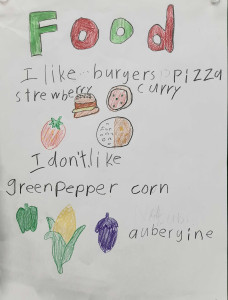 Food
I like burgers pizza
strewberry curry
I don't like
greenpepper corn
auberyine